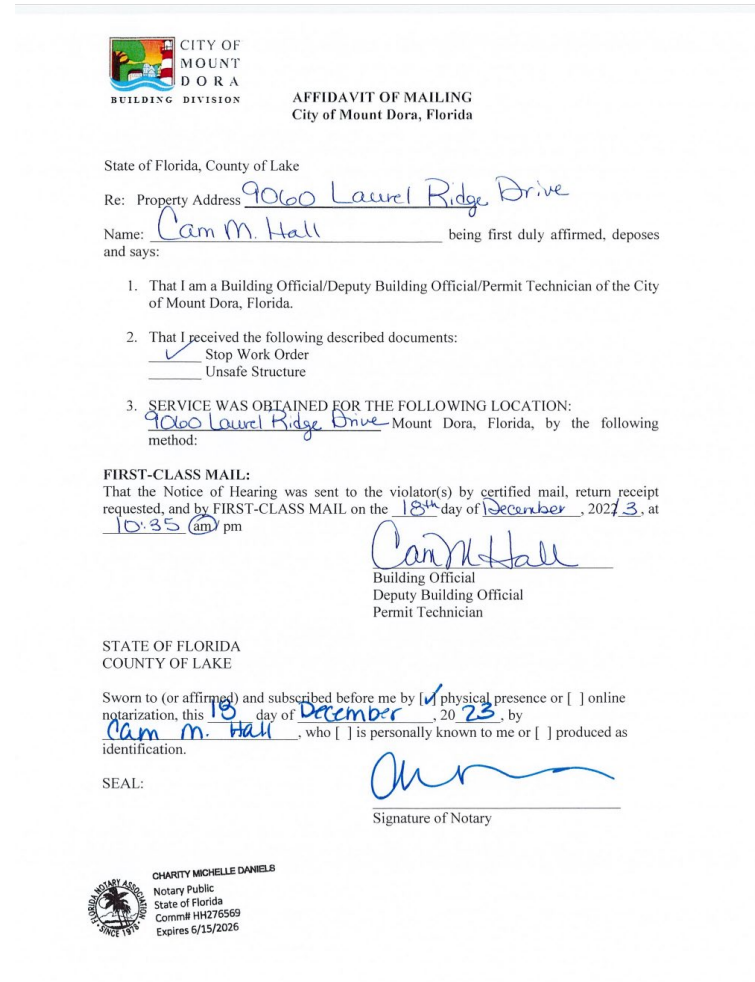 CITY OF
MOUNT
DORA
BUILDING DIVISION
AFFIDAVIT OF MAILING
City of Mount Dora, Florida
State of Florida, County of Lake
Re: Property Address 9060 Laurel Ridge Drive
Name: Cam M. Hall being first duly affirmed, deposes
and says:
1. That I am a Building Official/Deputy Building Official/Permit Technician of the City
of Mount Dora, Florida.
2. That I received the following described documents:
✓ Stop Work Order
Unsafe Structure
3. SERVICE WAS OBTAINED FOR THE FOLLOWING LOCATION:
9060 Laurel Ridge Drive Mount Dora, Florida, by the following
method:
FIRST-CLASS MAIL:
That the Notice of Hearing was sent to the violator(s) by certified mail, return receipt
requested, and by FIRST-CLASS MAIL on the 18th day of December, 2023, at
10:35 am/ pm
Cam M Hall
Building Official
Deputy Building Official
Permit Technician
STATE OF FLORIDA
COUNTY OF LAKE
Sworn to (or affirmed) and subscribed before me by [✓] physical presence or [ ] online
notarization, this 18 day of December, 20 23, by
Cam M. Hall, who [ ] is personally known to me or [ ] produced as
identification.
SEAL:
Signature of Notary
FLORIDA NOTARY ASSOCIATION
SINCE 1978
CHARITY MICHELLE DANIELS
Notary Public
State of Florida
Comm# HH276569
Expires 6/15/2026